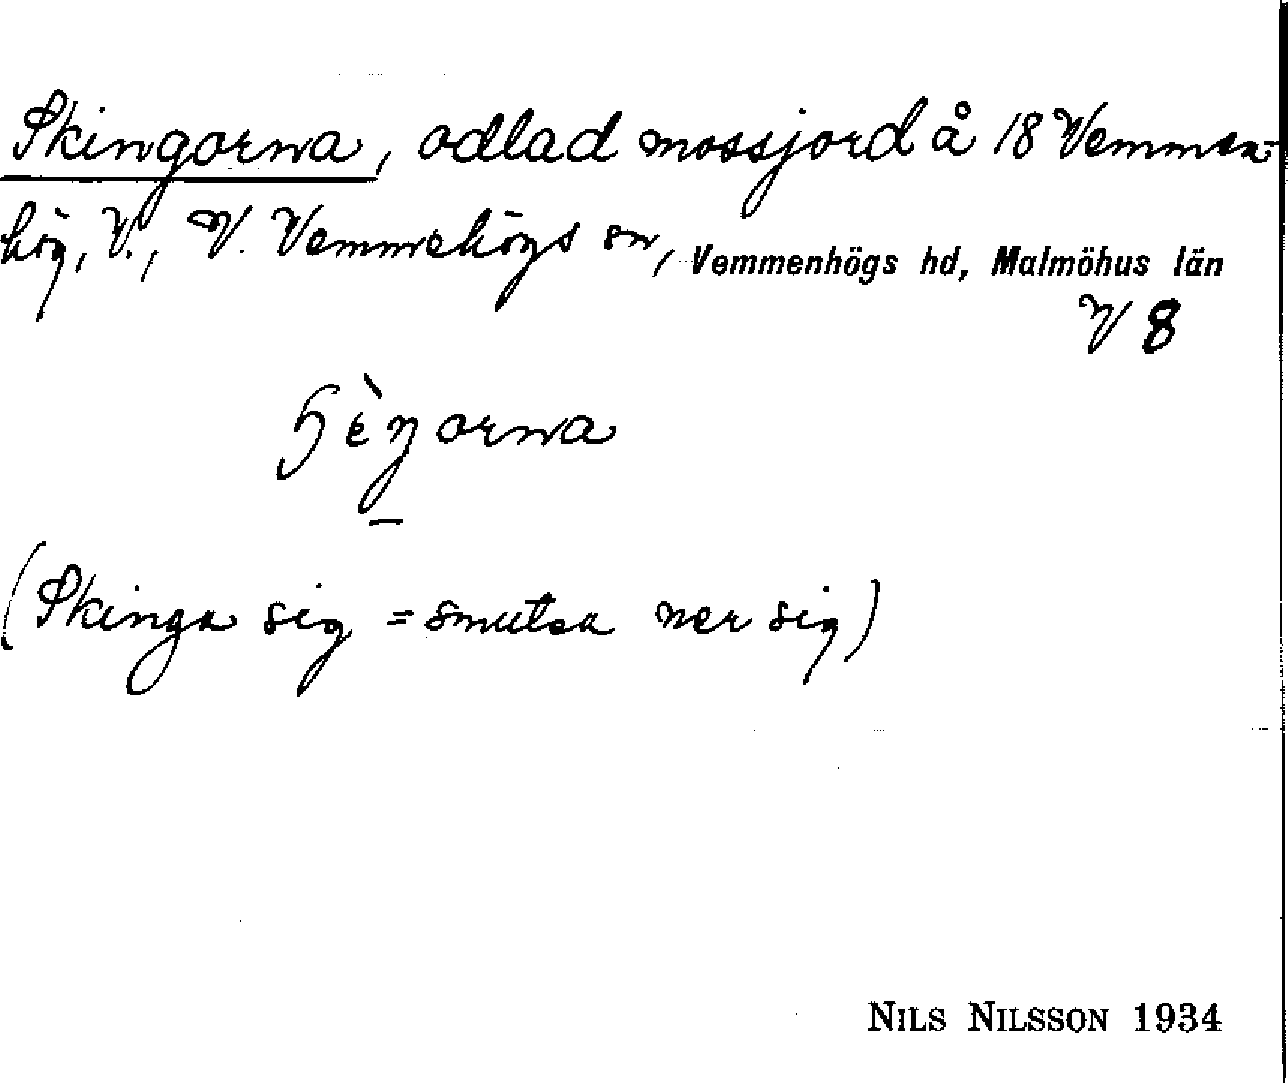 Skingorna, odlad mossjord å 18 Vemmen-
hög, V., V. Vemmehögs sn, Vemmenhögs hd, Malmöhus län
V 8
ɧèŋorna
(Skinga sig = smutsa ner sig)
NILS NILSSON 1934